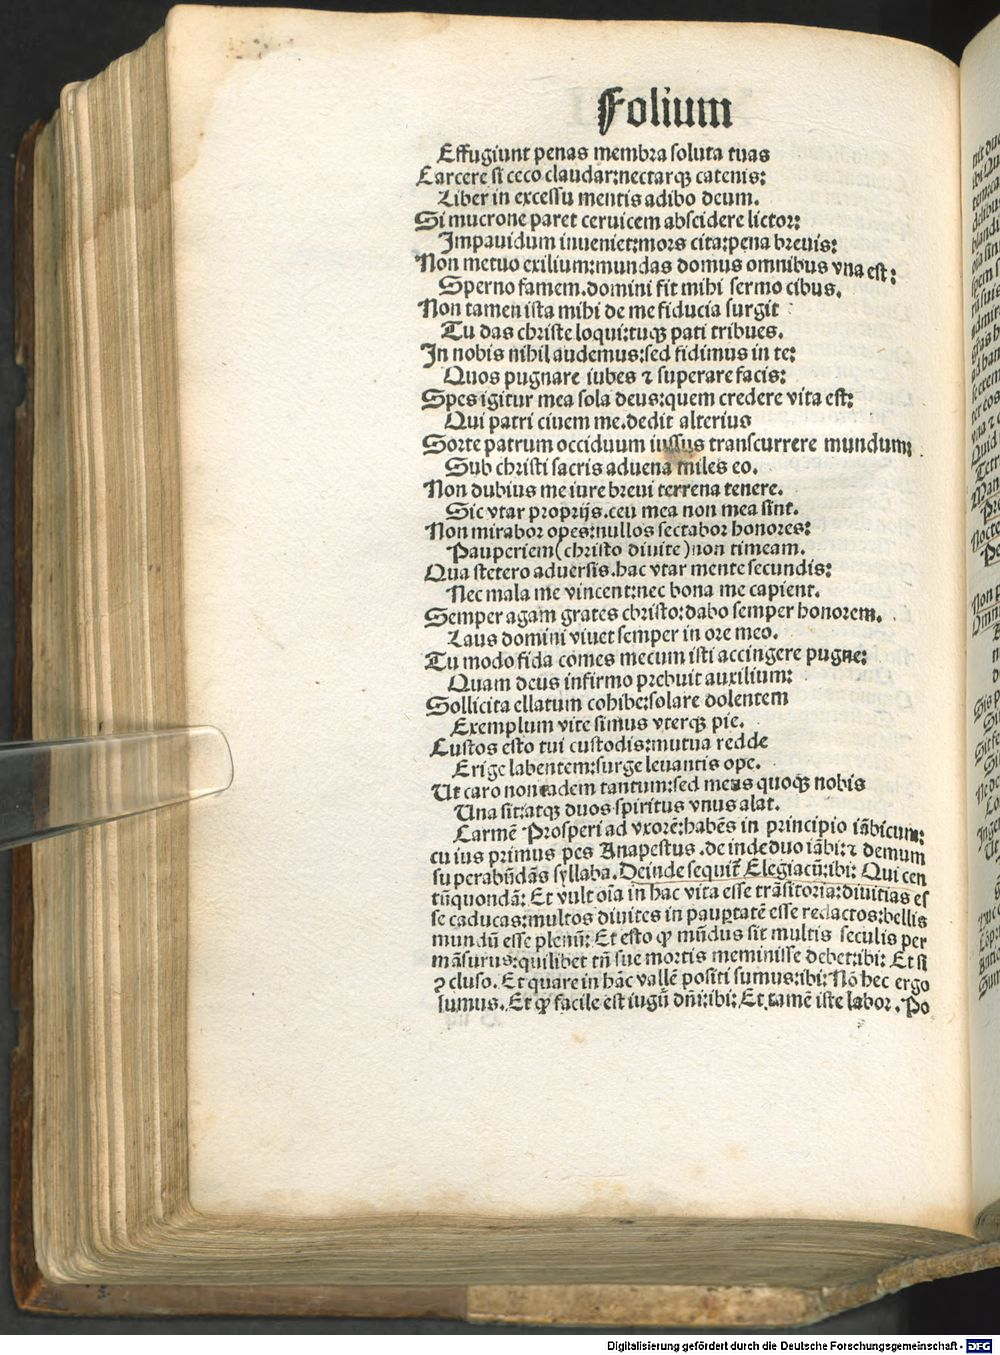 Folium
Effugiunt penas membra soluta tuas
Carcere si ceco claudar:nectarqꝫ catenis:
Liber in excessu mentis adibo deum.
Si mucrone paret ceruicem abscidere lictor:
Impauidum inueniet:mors cita:pena breuis:
Non metuo exilium:mundas domus omnibus vna est:
Sperno famem.domini fit mihi sermo cibus.
Non tamen ista mihi de me fiducia surgit
Tu das christe loqui:tuqꝫ pati tribues.
In nobis nihil audemus:sed fidimus in te:
Quos pugnare iubes ⁊ superare facis:
Spes igitur mea sola deus:quem credere vita est:
Qui patri ciuem me.dedit alterius
Sorte patrum occiduum iussus transcurrere mundum:
Sub christi sacris aduena miles eo.
Non dubius me iure breui terrena tenere.
Sic vtar proprijs.ceu mea non mea sint.
Non mirabor opes:nullos sectabor honores:
Pauperiem(christo diuite)non timeam.
Qua stetero aduersis.hac vtar mente secundis:
Nec mala me vincent:nec bona me capient.
Semper agam grates christo:dabo semper honorem.
Laus domini viuet semper in ore meo.
Tu modo fida comes mecum isti accingere pugne:
Quam deus infirmo prebuit auxilium:
Sollicita ellatum cohibe:solare dolentem
Exemplum vite simus vterqꝫ pie.
Custos esto tui custodis:mutua redde
Erige labentem:surge leuantis ope.
Ut caro non eadem tantum:sed mens quoqꝫ nobis
Una sit:atqꝫ duos spiritus vnus alat.
Carmē Prosperi ad vxorē:habēs in principio iābicum:
cu ius primus pes Anapestus.de inde duo iābi:⁊ demum
su perabūdās syllaba.Deinde sequit̃ Elegiacū:ibi: Qui cen
tūquondā: Et vult oīa in hac vita esse trāsitoria:diuitias es
se caducas:multos diuites in paup̱tatē esse redactos:bellis
mundū esse plenū: Et esto ꝙ mūdus sit multis seculis per
māsurus:quilibet tñ sue mortis meminisse debet:ibi: Et si
ꝯ cluso. Et quare in hāc vallē positi sumus:ibi: Nō hec ergo
sumus. Et ꝙ facile est iugū dñi:ibi: Et tamē iste labor. Po
Digitalisierung gefördert durch die Deutsche Forschungsgemeinschaft - DFG